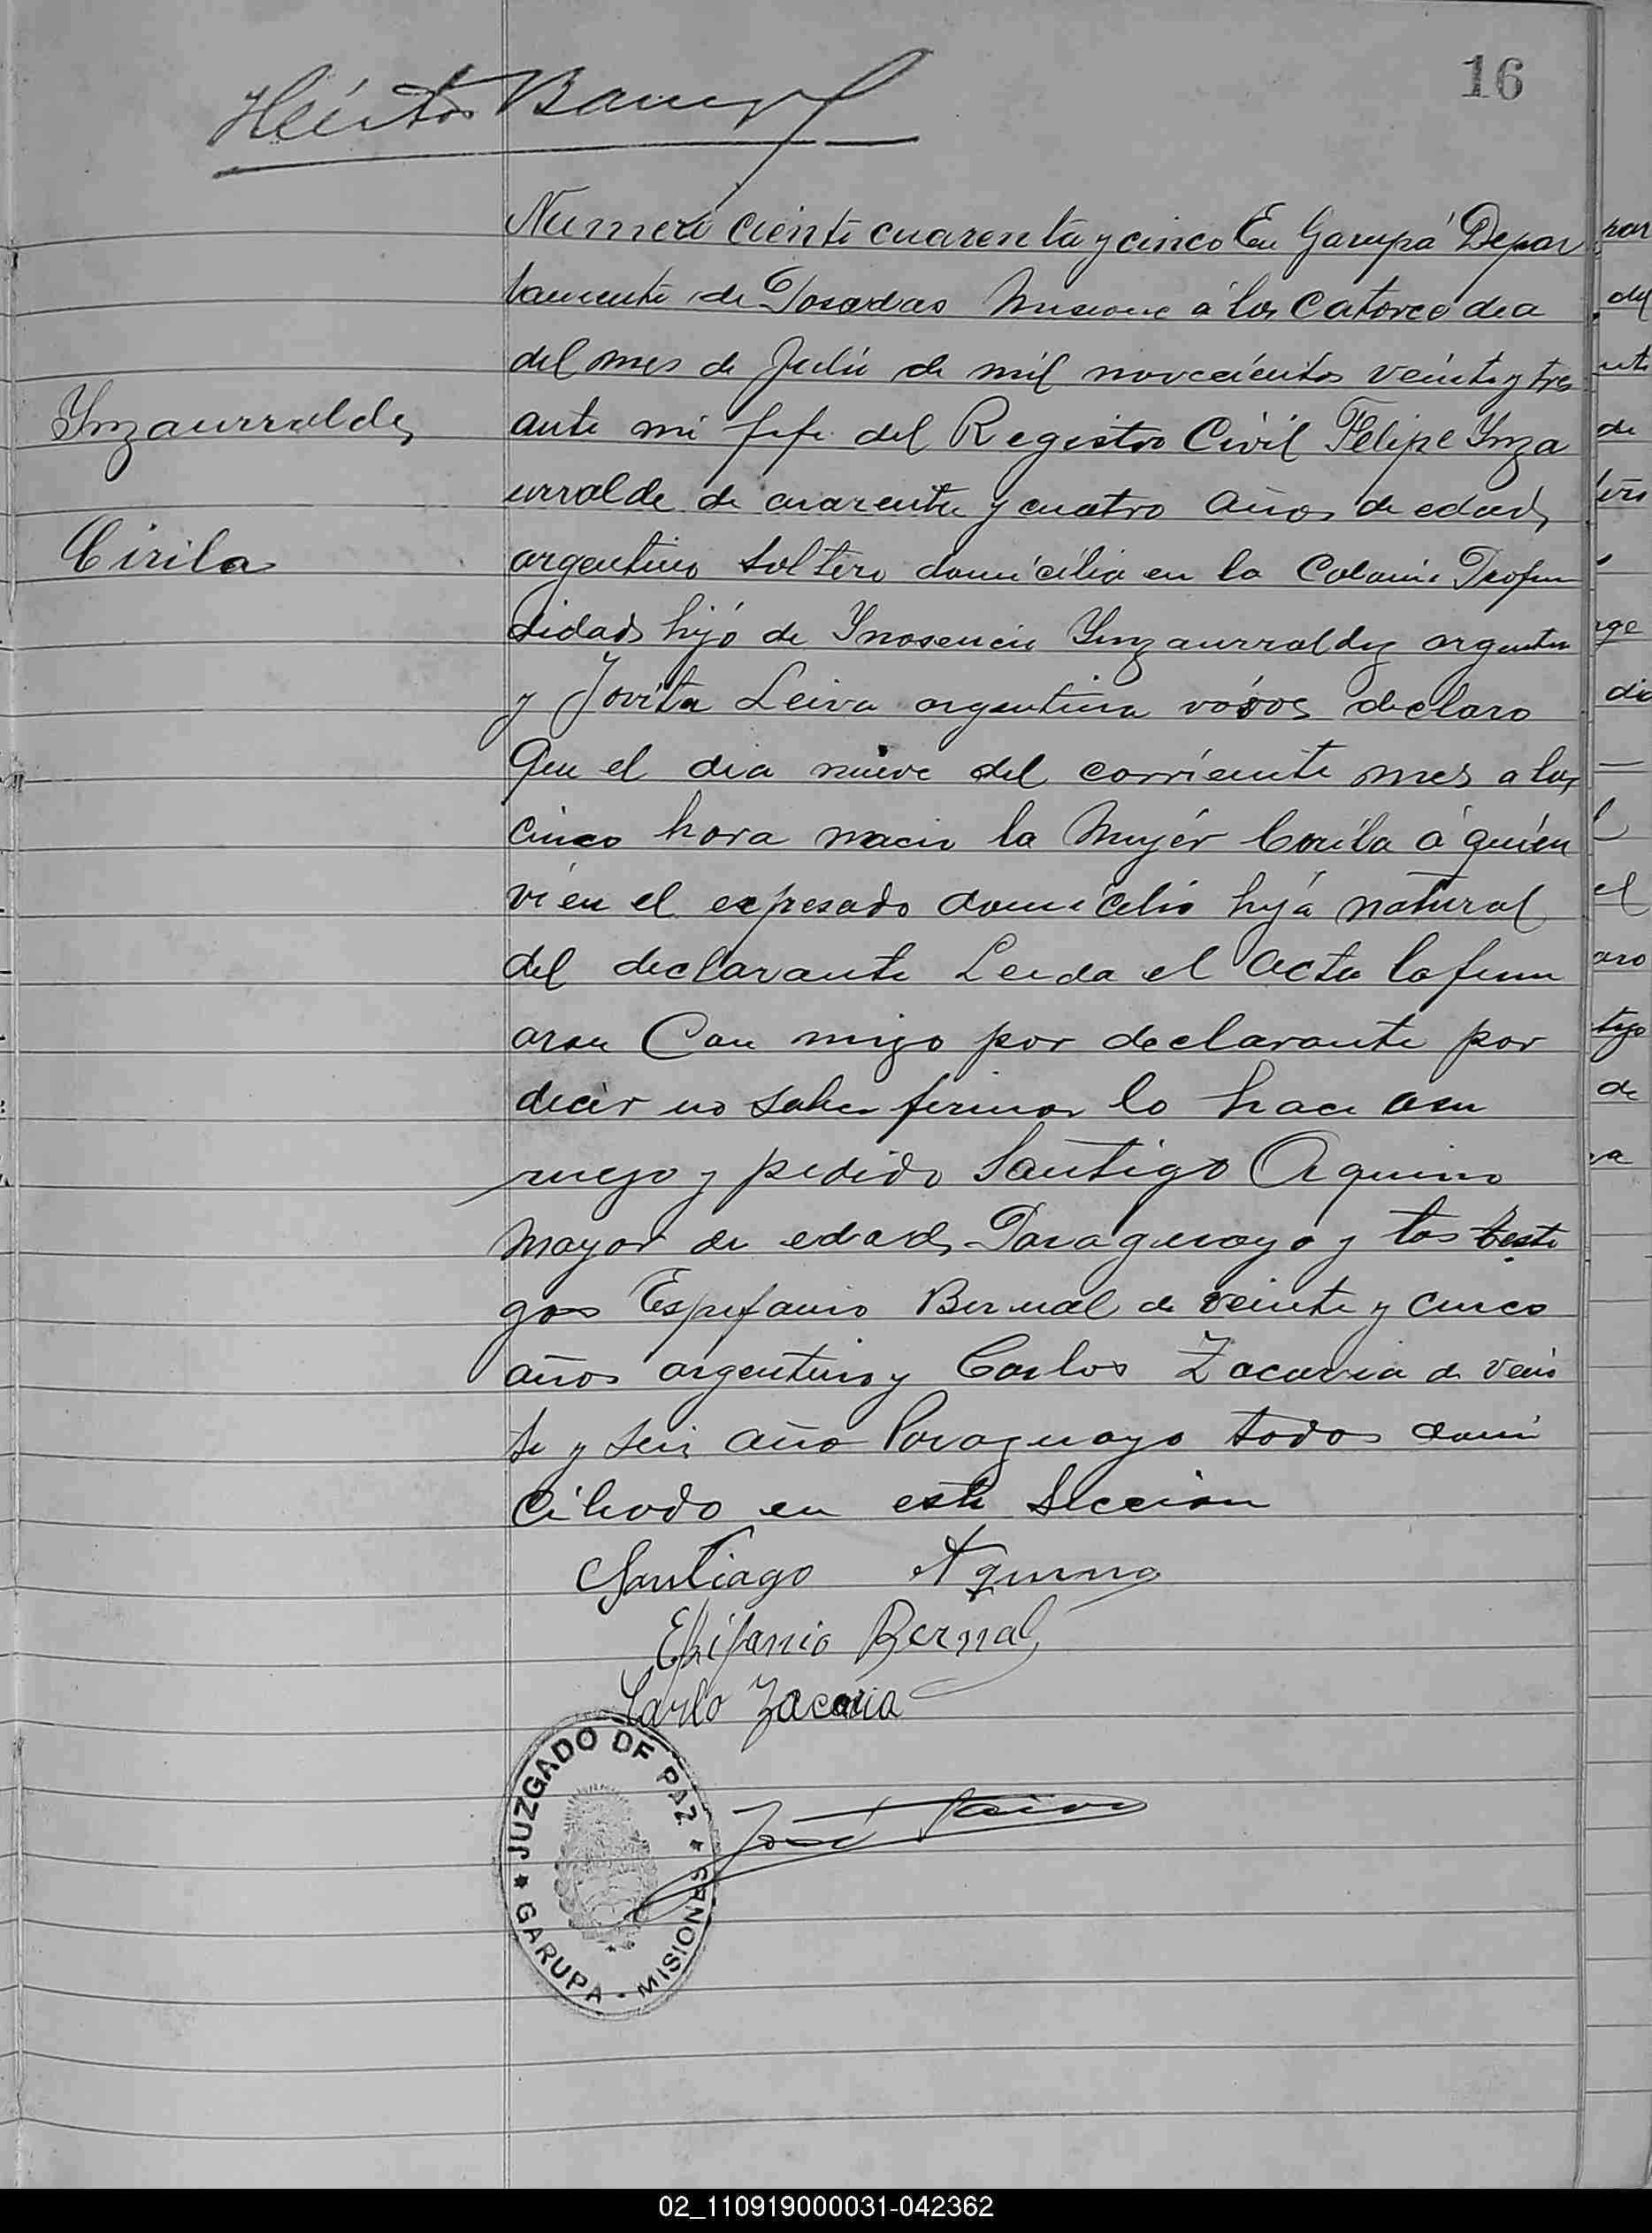 16
Héctor
Numero ciento cuarenta y cinco En Garupá Depar
tamento de Posadas Misione á los Catorce dia
del mes de Julio de mil novecientos veinte y tres
Ynzaurralde
ante mi Jefe del Registro Civil Felipe Ynza
urralde de cuarenta y cuatro años de edad
Cirila
argentino Soltero domicilia en la Colonia Profun
didad hijo de Inosencio Ynzaurralde argentino
y Jovita Leiva argentina declaro
Que el dia nueve del corriente mes a las
cinco hora nacio la Mujér Cirila á quien
vi en el expresado domicilio hija natural
del declarante Leida el Acta la firm
aron Con migo por declarante por
decir no saber firmar lo hace asu
ruego y pedido Santigo Aquino
Mayor de edad Paraguayo y los testi
gos Espifanio Bernal de veinte y cinco
años argentino y Carlos Zacaria de vein
te y seis año Paraguayo todos domi
ciliado en esta Seccion
Santiago Aquino
Epifanio Bernal
Carlo Zacaria
José Paiva
JUZGADO DE PAZ
GARUPA - MISIONES
par
del
nte
de
dia
el
aro
tigo
de
02_110919000031-042362